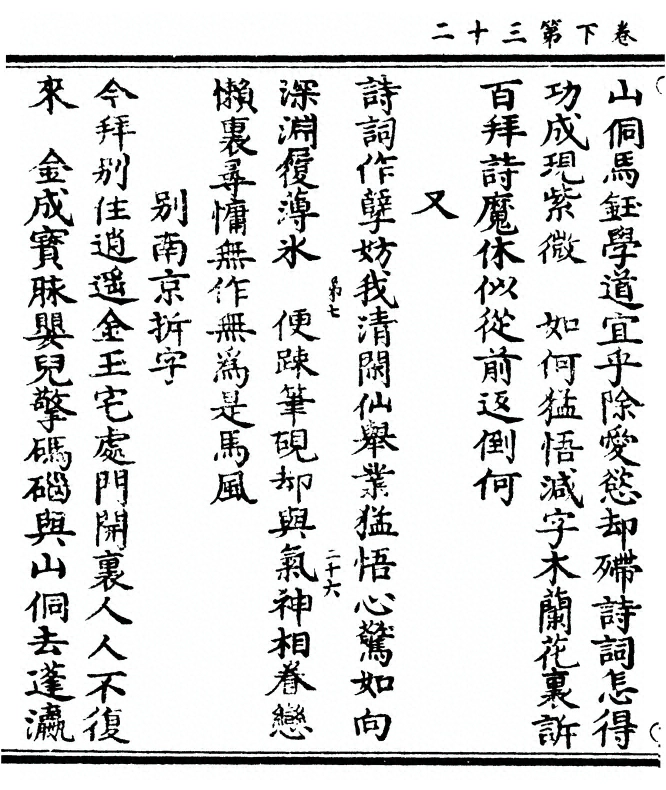 卷下第三十二
山侗馬鈺學道宜乎除愛慾却殢詩詞怎得
功成現紫微　如何猛悟減字木蘭花裏訴
百拜詩魔休似從前返倒何
又
詩詞作孽妨我清閑仙舉業猛悟心驚如向
第七
二十六
深淵履薄氷　便踈筆硯却與氣神相眷戀
懶裏尋慵無作無為是馬風
別南京拆字
今拜別住逍遥金玉宅處門開裏人人不復
來　金成寳眿嬰兒擎碼碯與山侗去蓬瀛